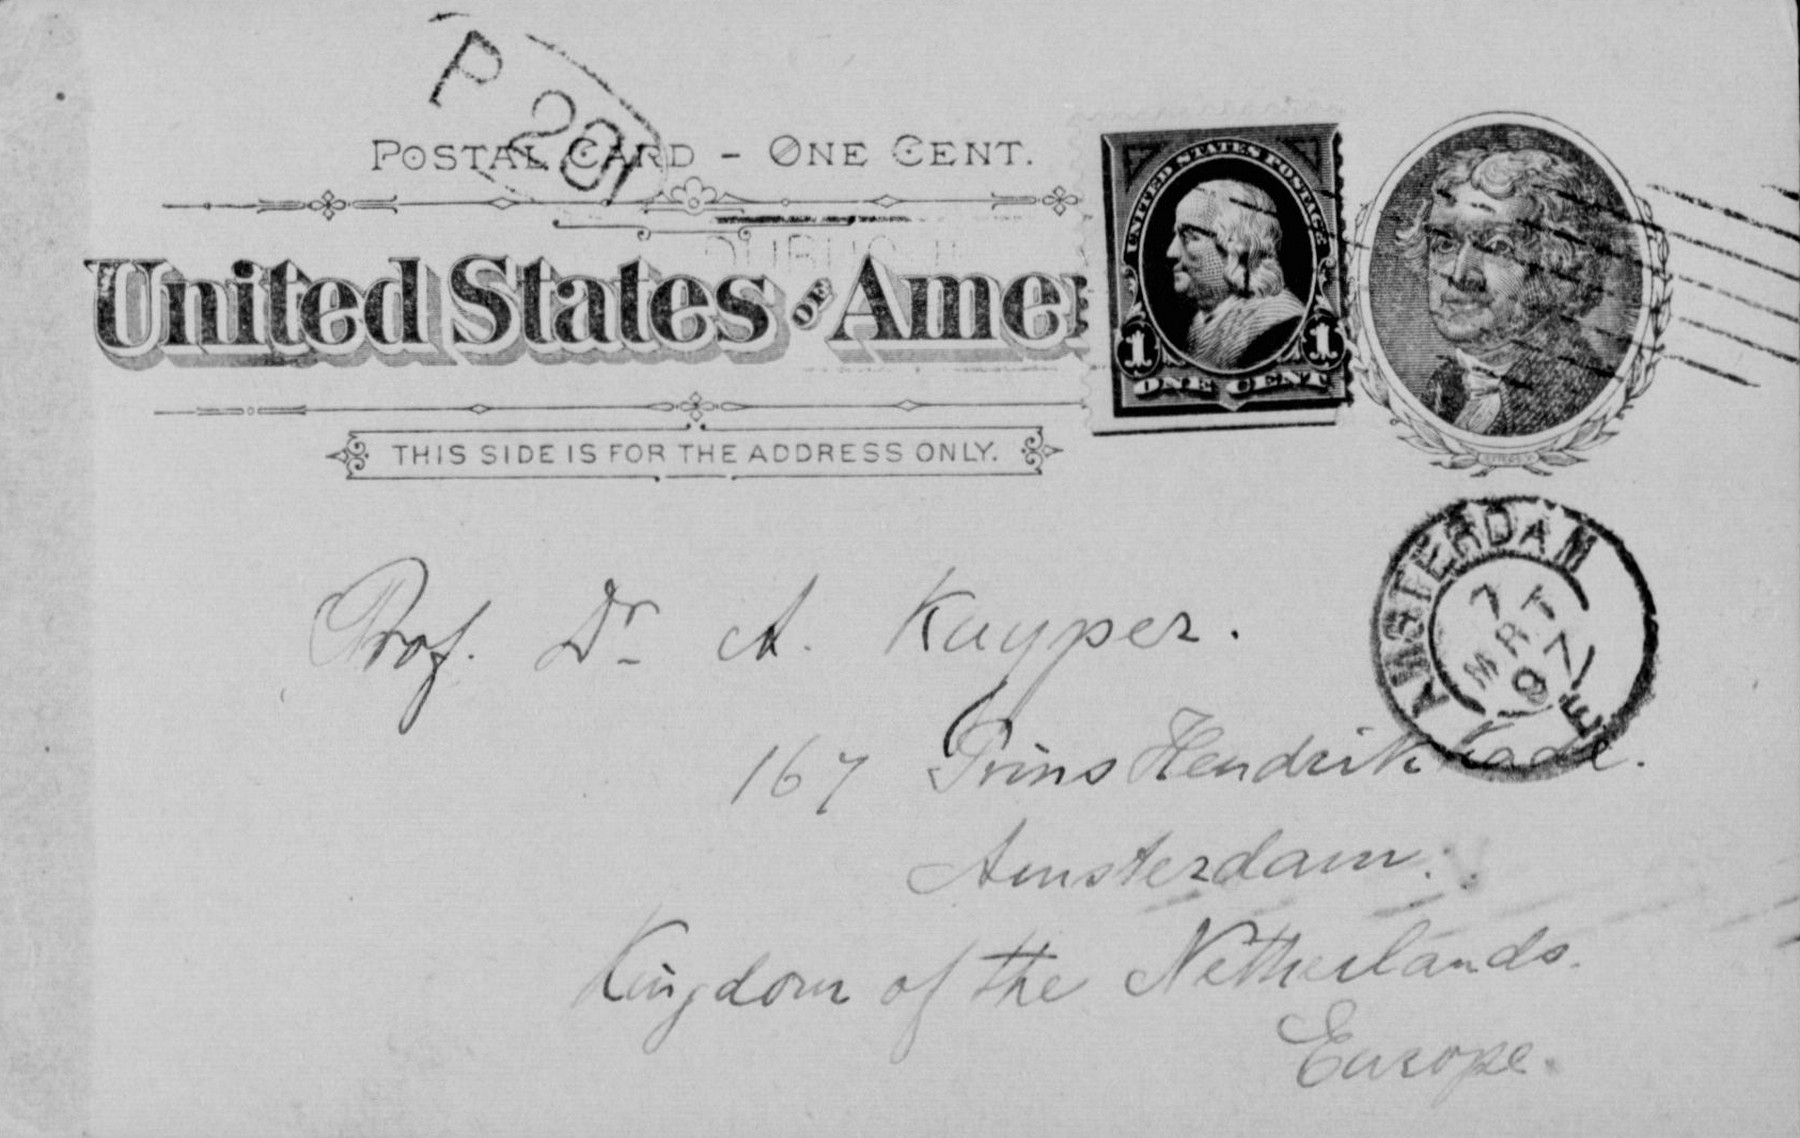 P 28
POSTAL CARD - ONE CENT.
United States OF Amer
UNITED STATES POSTAGE
1 1
ONE CENT
THIS SIDE IS FOR THE ADDRESS ONLY.
AMSTERDAM
7 MRT 97
Prof. Dr. A. Kuyper.
167 Prins Hendrik Kade.
Amsterdam.
Kingdom of the Netherlands.
Europe.